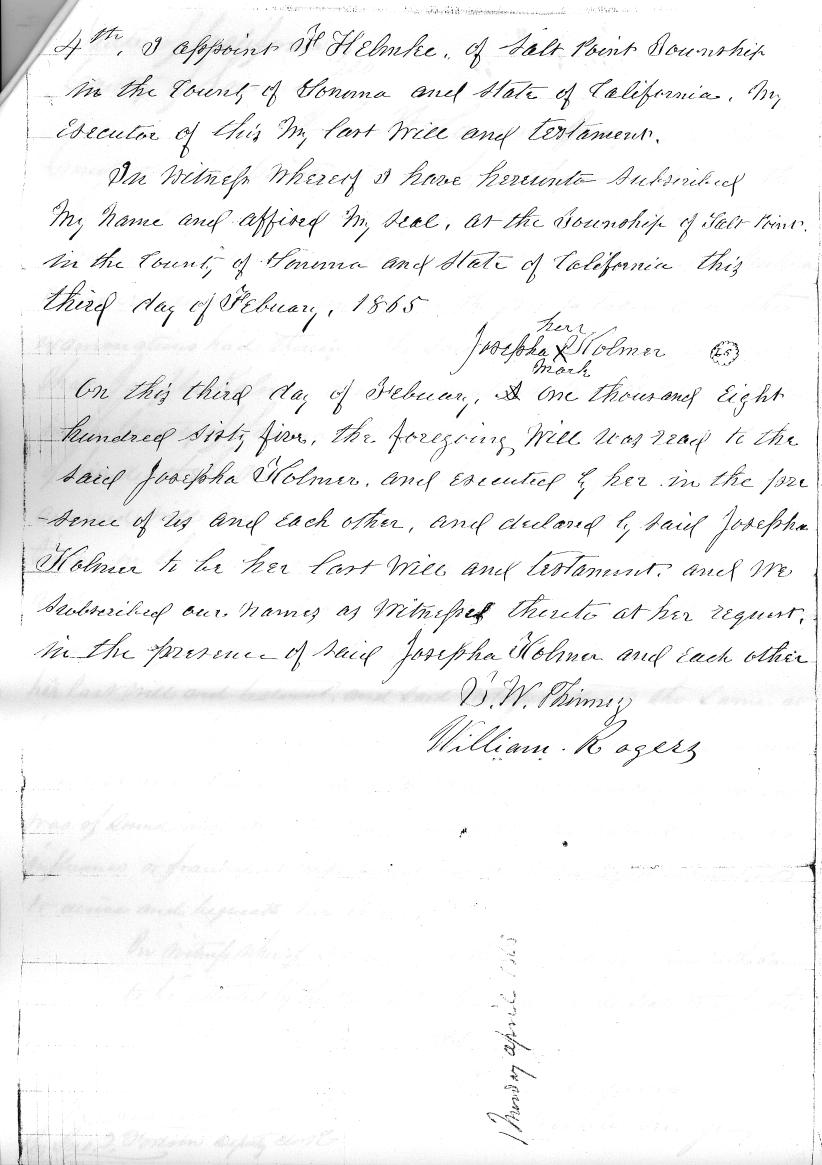 4th, I appoint F Helmke, of Salt Point Township
in the County of Sonoma and State of California, My
Executor of this My last Will and testament.
In Witness Whereof I have hereunto Subscribed
My Name and affixed My seal, at the Township of Salt Point.
in the County of Sonoma and State of California this
third day of Febuary, 1865
her
Josepha X Kolmer LS
Mark
On this third day of Febuary, one thousand Eight
hundred sixty five, the foregoing Will was read to the
said Josepha Kolmer, and executed by her in the pre
sence of us and each other, and declared by said Josepha
Kolmer to be her last Will and testament. and We
subscribed our names as Witnesses thereto at her request.
in the presence of said Josepha Kolmer and each other
William Rogers
was of sound
In witness whereof
april 1865